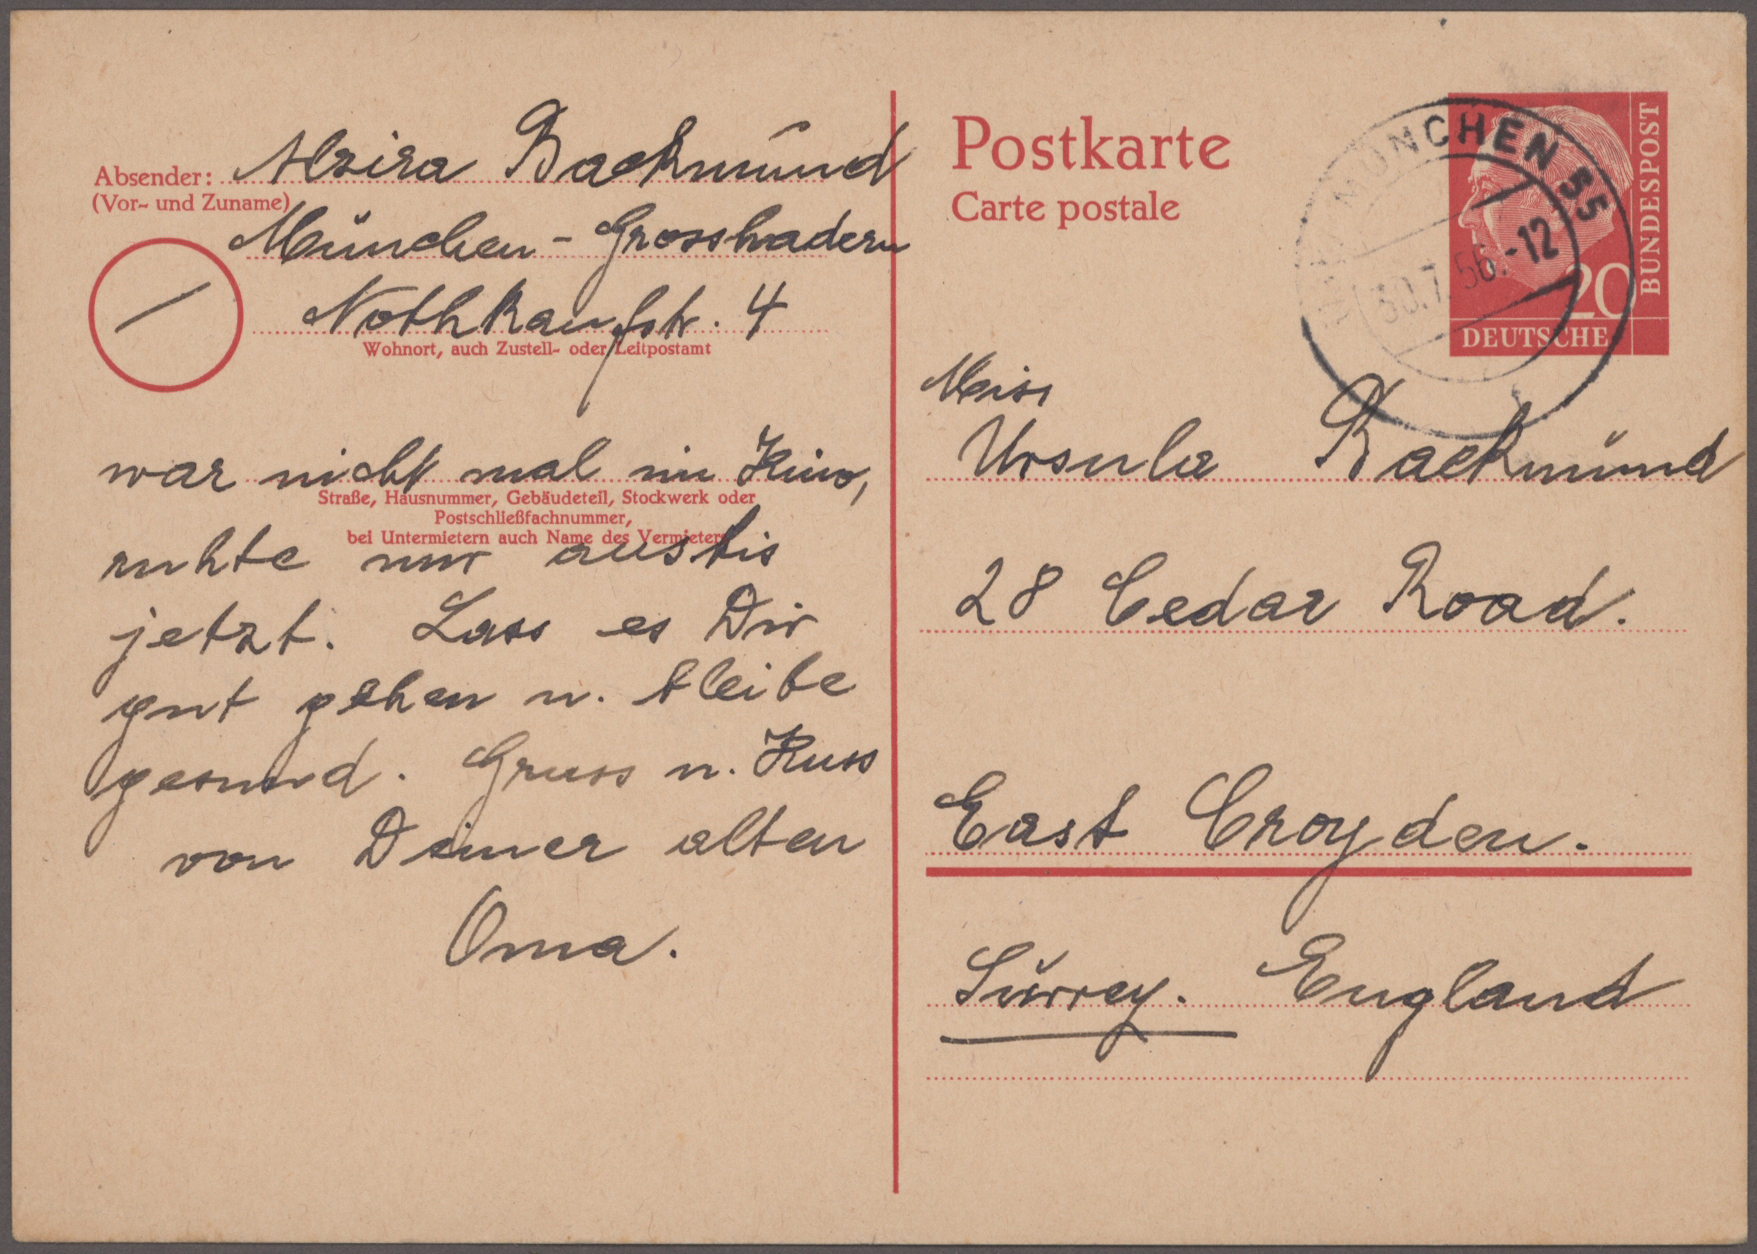 Absender: Alzira Backmund
(Vor- und Zuname)
München - Grosshadern
Nothkaufstr. 4
Wohnort, auch Zustell- oder Leitpostamt
war nicht mal im Kino,
Straße, Hausnummer, Gebäudeteil, Stockwerk oder
Postschließfachnummer,
bei Untermietern auch Name des Vermieters
ruhte nur aus bis
jetzt. Lass es Dir
gut gehen u. bleibe
gesund. Gruss u. Kuss
von Deiner alten
Oma.
Postkarte
Carte postale
MÜNCHEN 55
30.7.56.-12
20
DEUTSCHE
BUNDESPOST
Miss
Ursula Backmund
28 Cedar Road.
East Croyden.
Surrey. England